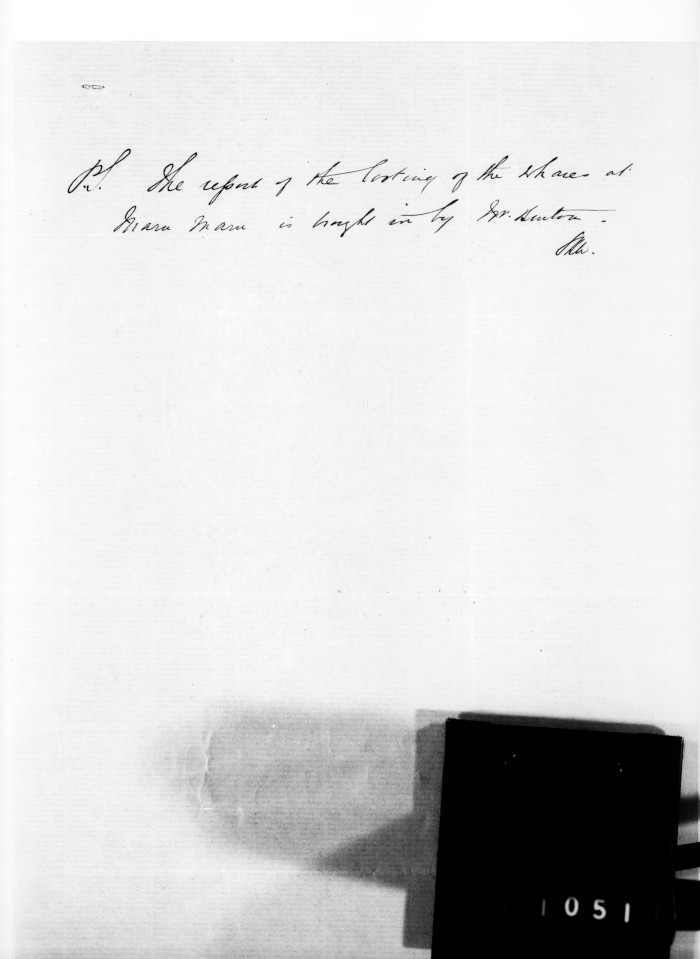 P.S. The report of the looting of the whares at
Mara Mara is brought in by Mr. Hunton.
1051